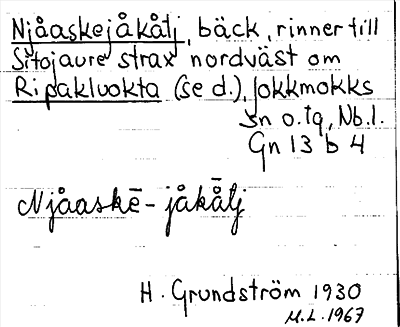 Njåaskejåkålj, bäck, rinner till
Sitojaure strax nordväst om
Ripakluokta (se d.), Jokkmokks
sn o. tg, Nb.l.
Gn 13 b 4
Njåaskē-jåkå̄lj
H. Grundström 1930
M.L. 1967